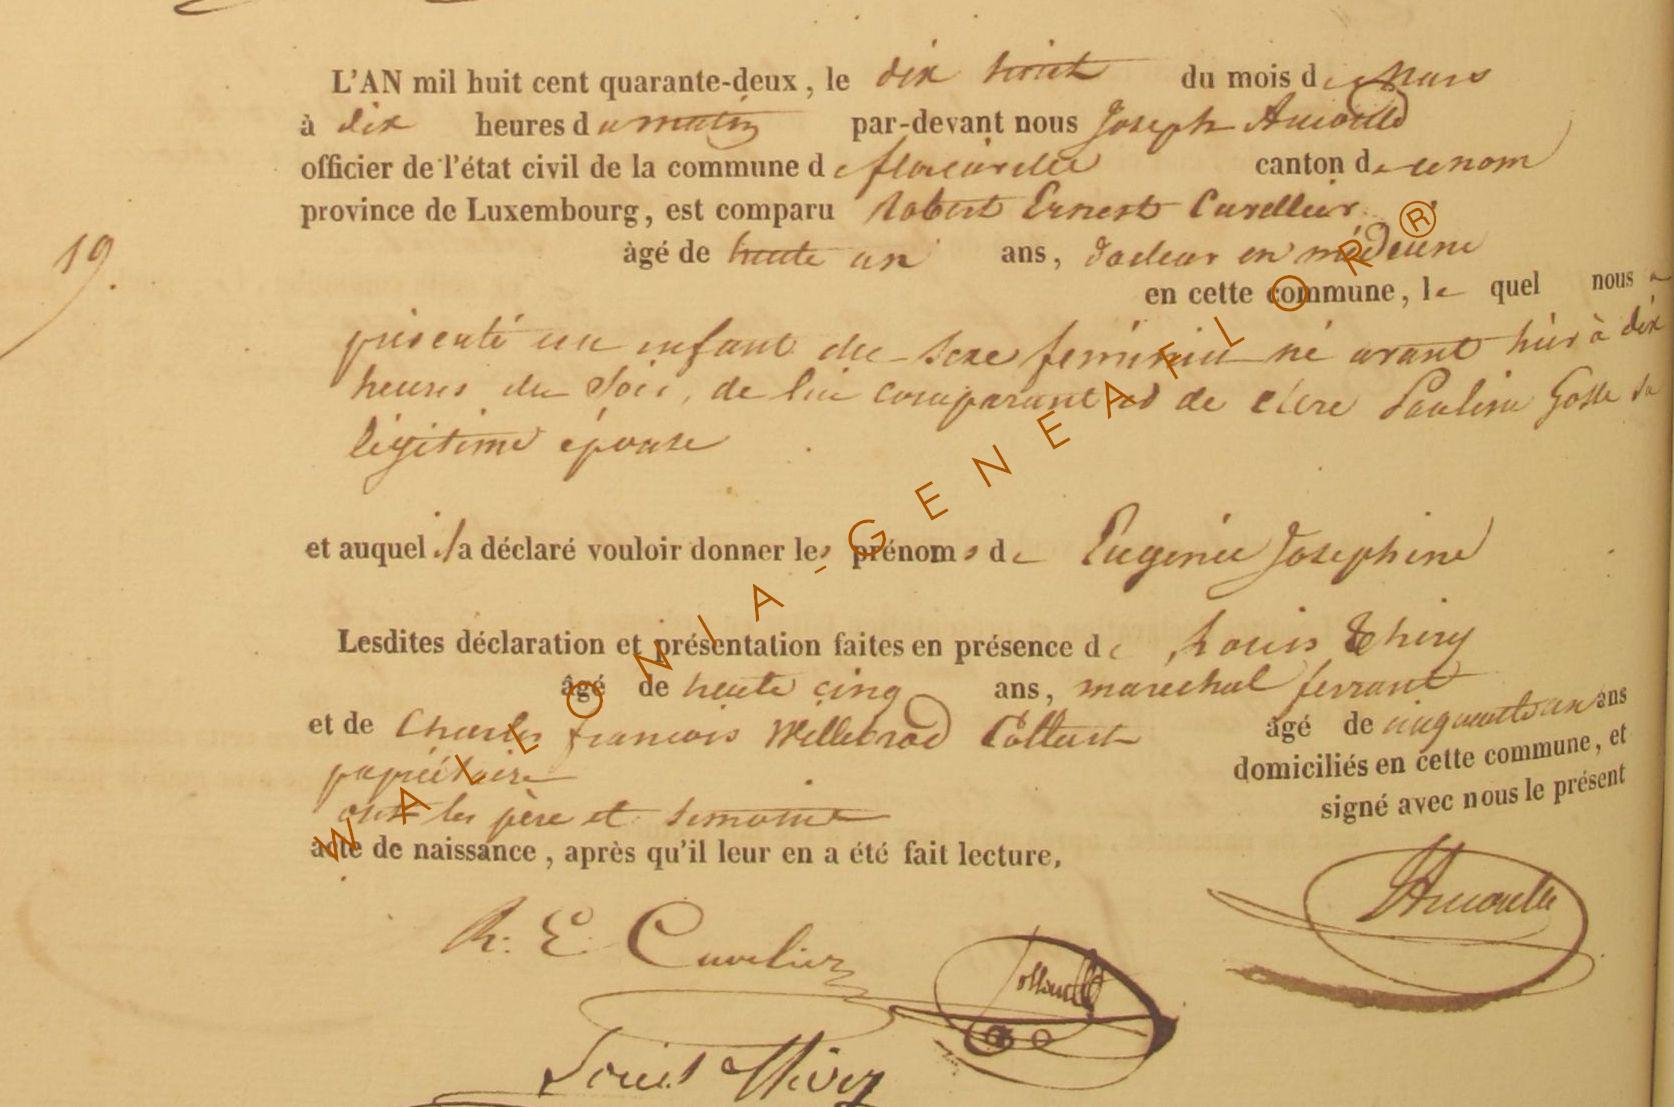 L'AN mil huit cent quarante-deux, le dix huit du mois de Mars
à dix heures du matin par-devant nous Joseph Arnould
officier de l'état civil de la commune de florenville canton de ce nom
province de Luxembourg, est comparu Robert Ernest Cuvellier
19.
âgé de trente un ans, docteur en médecine
en cette commune, le quel nous a
présenté un enfant du sexe féminin né avant hier à dix
heures du soir, de lui comparant et de Clere Pauline Gosse sa
légitime épouse
et auquel il a déclaré vouloir donner les prénoms de Eugenie Josephine
Lesdites déclaration et présentation faites en présence de Louis Thiry
âgé de trente cinq ans, marechal ferrant
et de Charles francois Willebrod Collard âgé de cinquante un ans
propriétaire domiciliés en cette commune, et
ont les père et temoins signé avec nous le présent
acte de naissance, après qu'il leur en a été fait lecture.
R. E. Cuvelier
Louis Thiry
WALLONIA-GENEAFLOR®